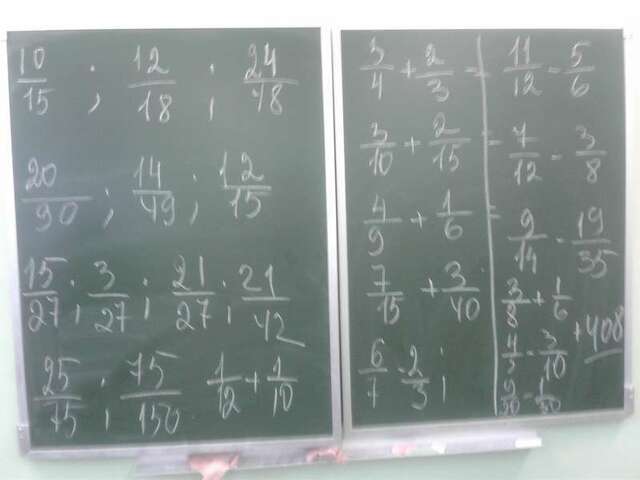 10/15 ; 12/18 ; 24/48
20/90 ; 14/49 ; 12/15
15/27 ; 3/27 ; 21/27 ; 21/42
25/75 ; 75/150 1/12 + 1/10
3/4 + 2/3 =
3/10 + 2/15 =
4/9 + 1/6 =
7/15 + 3/40
6/7 - 2/3 ;
11/12 - 5/6
7/12 - 3/8
9/14 - 19/35
3/8 + 1/6
+408
3/10